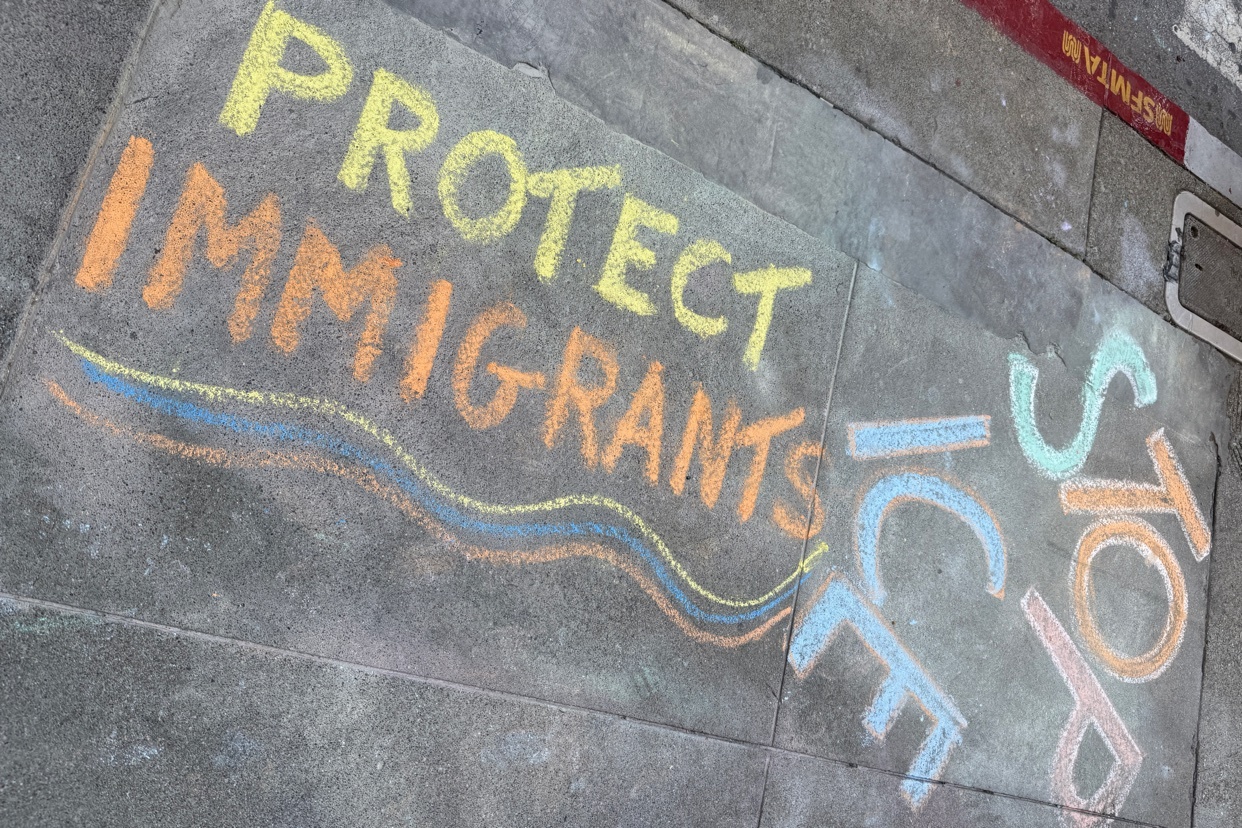 PROTECT
IMMIGRANTS
STOP
ICE
SFMTA